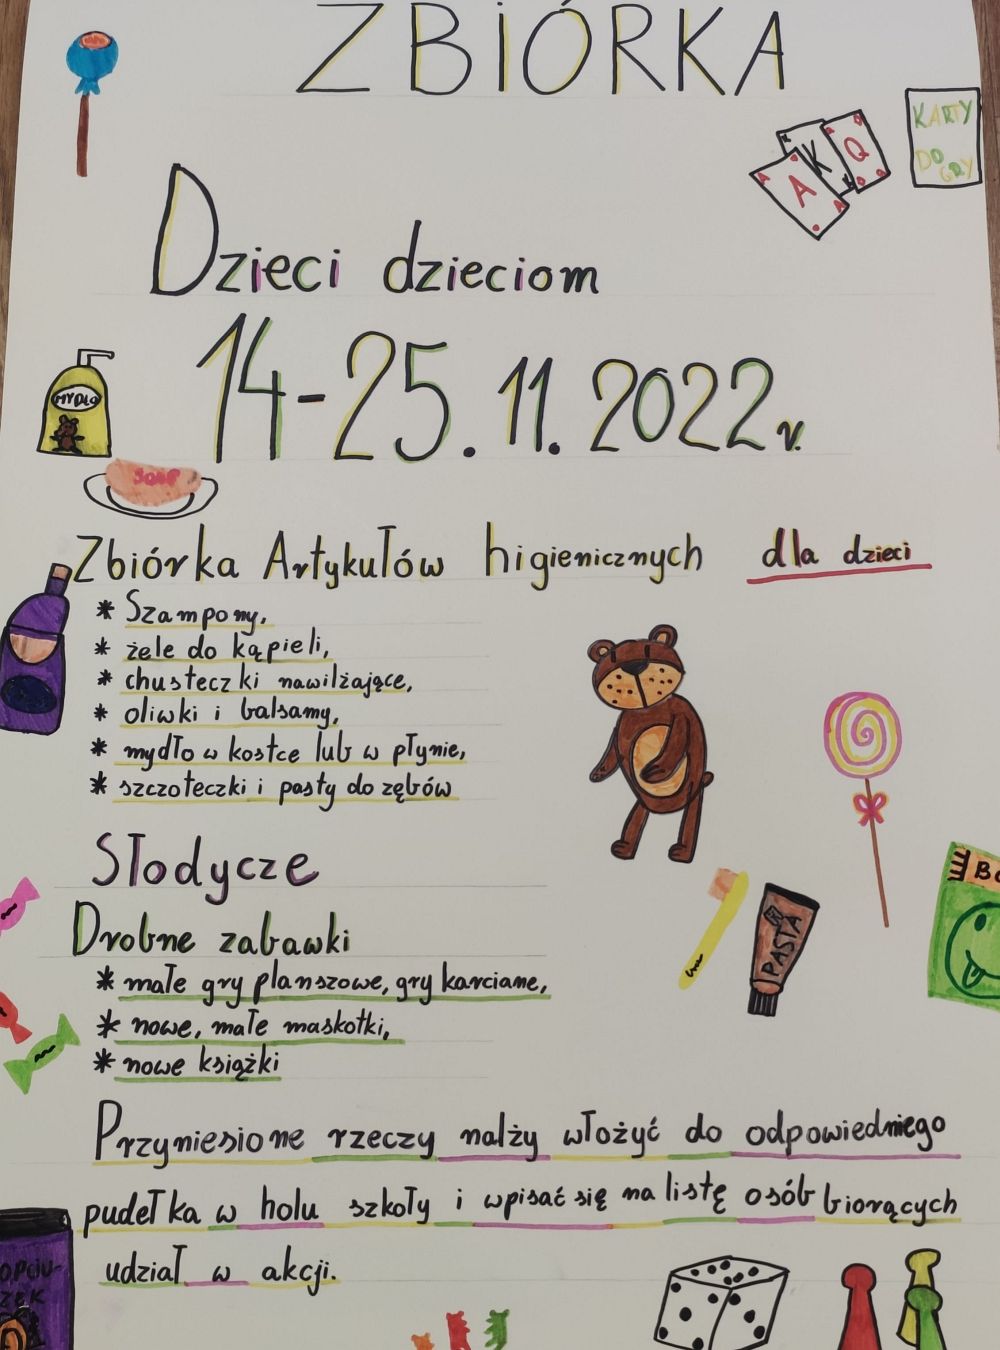 ZBIÓRKA
KARTY
DO
GRY
A K Q
Dzieci dzieciom
14-25.11.2022r.
MYDŁO
SOAP
Zbiórka Artykułów higienicznych dla dzieci
* Szampony,
* żele do kąpieli,
* chusteczki nawilżające,
* oliwki i balsamy,
* mydło w kostce lub w płynie,
* szczoteczki i pasty do zębów
Słodycze
PASTA
Drobne zabawki
* małe gry planszowe, gry karciane,
* nowe, małe maskotki,
* nowe książki
Przyniesione rzeczy nalży włożyć do odpowiedniego
pudełka w holu szkoły i wpisać się na listę osób biorących
udział w akcji.